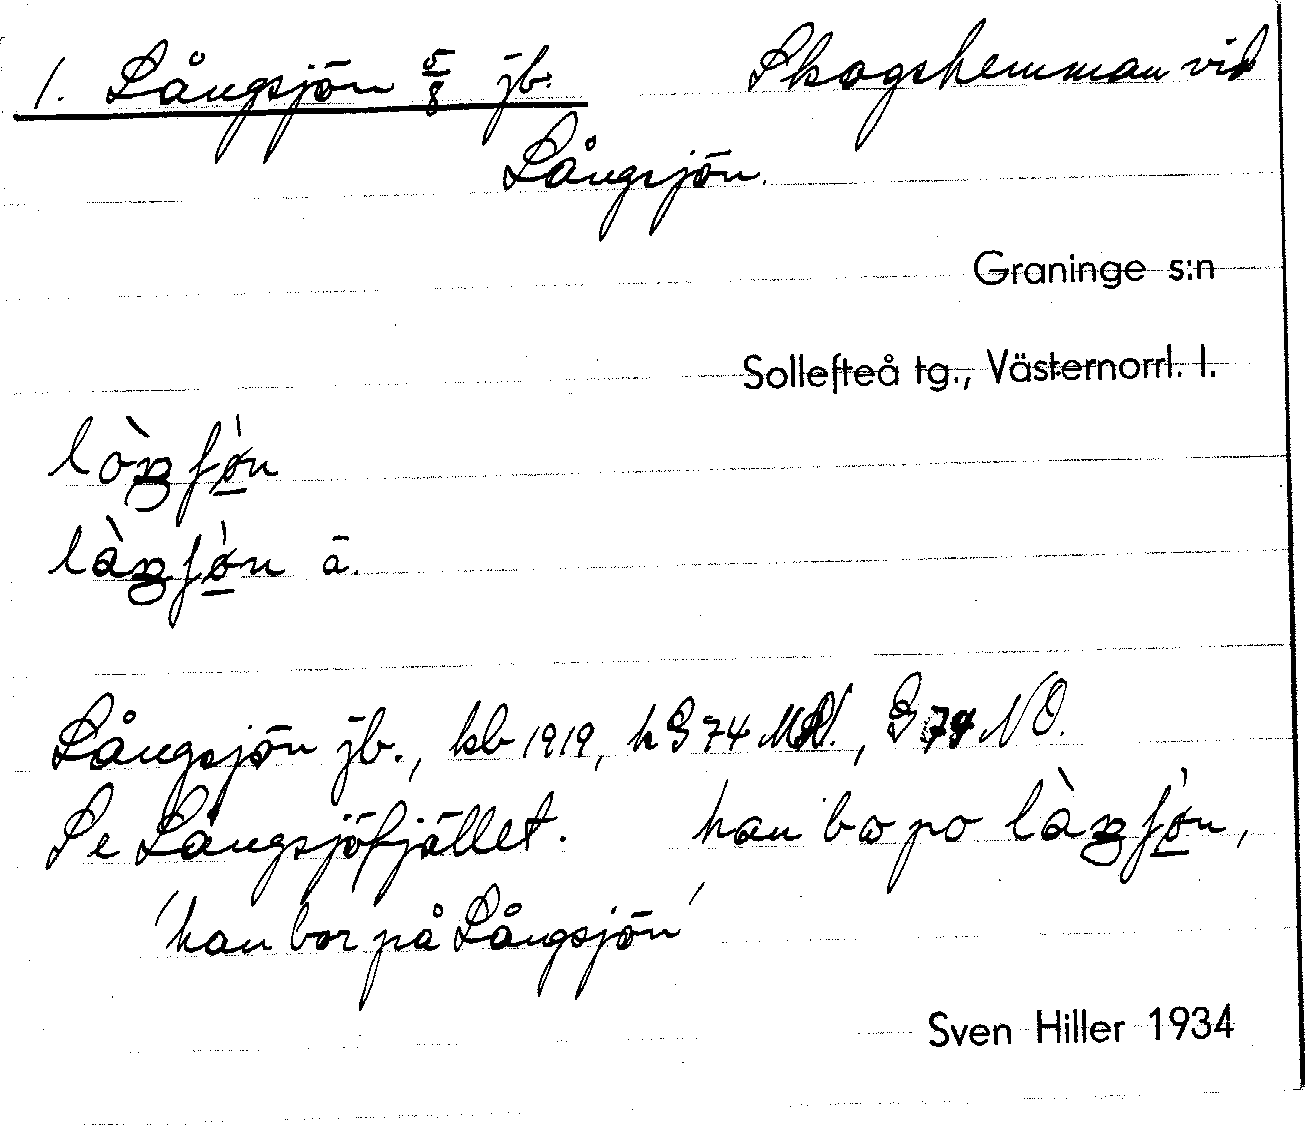 1. Långsjön 5/8 jb. Skogshemman vid
Långsjön.
Graninge s:n
Sollefteå tg., Västernorrl. l.
lòŋʃø̀n
làŋʃø̀n ā.
Långsjön jb., kb 1919, k G 74 NO.
Se Långsjöfjället. han bo po làŋʃø̀n,
'han bor på Långsjön'
Sven Hiller 1934